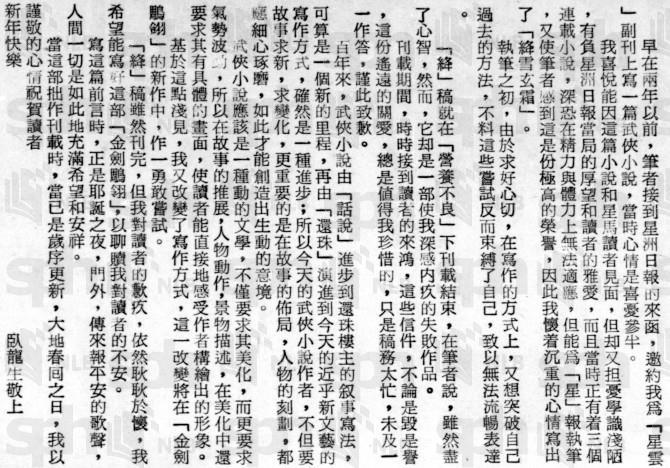 早在兩年以前，筆者接到星洲日報的來函，邀約我爲「星雲
」副刊上寫一篇武俠小說，當時心情是喜憂參半。
我喜悅能因這篇小說和星馬讀者見面，但却又担憂學識淺陋
，有負星洲日報當局的厚望和讀者的雅愛，而且當時正有着三個
連載小說，深恐在精力與體力上無法適應，但能爲「星」報執筆
，又使筆者感到這是份極高的榮譽，因此我懷着沉重的心情寫出
了「絳雪玄霜」。
執筆之初，由於求好心切，在寫作的方式上，又想突破自己
過去的方法，不料這些嘗試反而束縛了自己，致以無法流暢表達
。
「絳」稿就在「營養不良」下刊載結束，在筆者說，雖然盡
了心智，然而，它却是一部使我深感內疚的失敗作品。
刊載期間，時時接到讀者的來鴻，這些信件，不論是毀是譽
，這份遙遠的關愛，總是值得我珍惜的，只是稿務太忙，未及一
一作答，謹此致歉。
百年來，武俠小說由「話說」進步到還珠樓主的叙事寫法，
可算是一個新的里程，再由「還珠」演進到今天的近乎新文藝的
寫作方式，確然是一種進步；所以今天的武俠小說作者，不但要
故事求新，求變化，更重要的是在故事的佈局，人物的刻劃，都
應細心琢磨，如此才能創造出生動的意境。
武俠小說應該是一種動的文學，不僅要求其美化，而更要求
氣勢波動，所以在故事的推展，人物動作，景物描述，在美化中還
要求其有具體的畫面，使讀者能直接地感受作者構繪出的形象。
基於這點淺見，我又改變了寫作方式，這一改變將在「金劍
鵰翎」的新作中，作一勇敢嘗試。
「絳」稿雖然刊完，但我對讀者的歉疚，依然耿耿於懷，我
希望能寫好這部「金劍鵰翎」，以聊贖我對讀者的不安。
寫這篇前言時，正是耶誕之夜，門外，傳來報平安的歌聲，
人間一切是如此地充滿希望和安祥。
當這部拙作刊載時，當已是歲序更新，大地春囘之日，我以
謹敬的心情祝賀讀者
新年快樂
臥龍生敬上